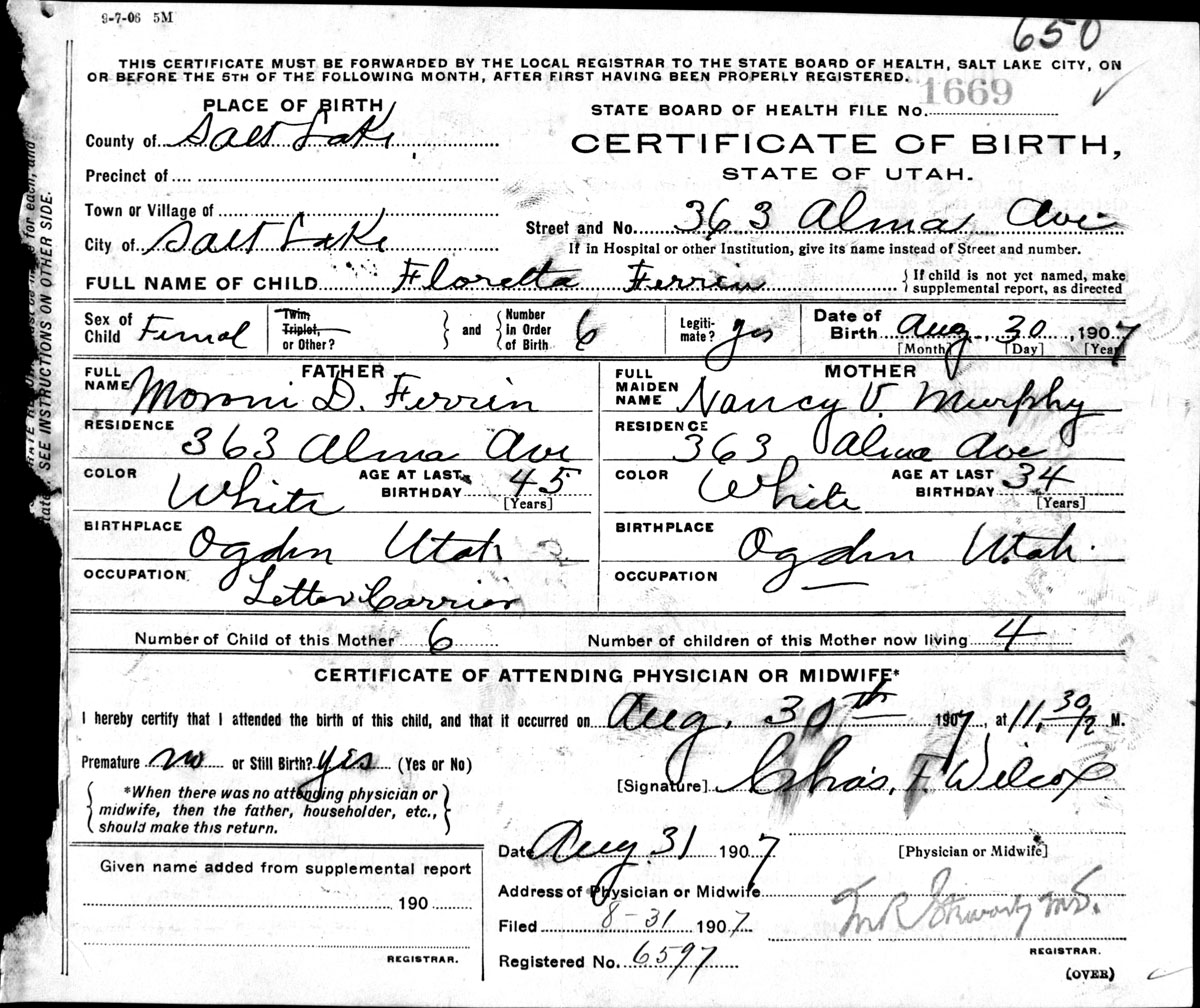 9-7-06 5M
650
THIS CERTIFICATE MUST BE FORWARDED BY THE LOCAL REGISTRAR TO THE STATE BOARD OF HEALTH, SALT LAKE CITY, ON
OR BEFORE THE 5TH OF THE FOLLOWING MONTH, AFTER FIRST HAVING BEEN PROPERLY REGISTERED.
PLACE OF BIRTH
STATE BOARD OF HEALTH FILE No. 1669
County of Salt Lake
CERTIFICATE OF BIRTH,
Precinct of
STATE OF UTAH.
Town or Village of
Street and No. 363 Alma Ave
City of Salt Lake
If in Hospital or other Institution, give its name instead of Street and number.
FULL NAME OF CHILD Floretta Ferrin
If child is not yet named, make
supplemental report, as directed
Sex of
Child Femal
Twin,
Triplet,
or Other?
and
Number
in Order
of Birth 6
Legiti-
mate? yes
Date of
Birth Aug. 30, 1907
[Month] [Day] [Year]
FATHER
FULL
NAME Moroni D. Ferrin
RESIDENCE
363 Alma Ave
COLOR White
AGE AT LAST
BIRTHDAY 45
[Years]
BIRTHPLACE
Ogden Utah
OCCUPATION
Letter Carrier
MOTHER
FULL
MAIDEN
NAME Nancy V. Murphy
RESIDENCE
363 Alma Ave
COLOR White
AGE AT LAST
BIRTHDAY 34
[Years]
BIRTHPLACE
Ogden Utah.
OCCUPATION —
Number of Child of this Mother 6 Number of children of this Mother now living 4
CERTIFICATE OF ATTENDING PHYSICIAN OR MIDWIFE*
I hereby certify that I attended the birth of this child, and that it occurred on Aug. 30th 1907, at 11.30 M.
Premature no or Still Birth? yes (Yes or No)
[Signature] Chas. F. Wilcox
*When there was no attending physician or
midwife, then the father, householder, etc.,
should make this return.
Date Aug. 31 1907
[Physician or Midwife]
Given name added from supplemental report
190
REGISTRAR.
Address of Physician or Midwife
Filed 8-31 1907
Registered No. 6597
REGISTRAR.
(OVER)
SEE INSTRUCTIONS ON OTHER SIDE.
for each, and